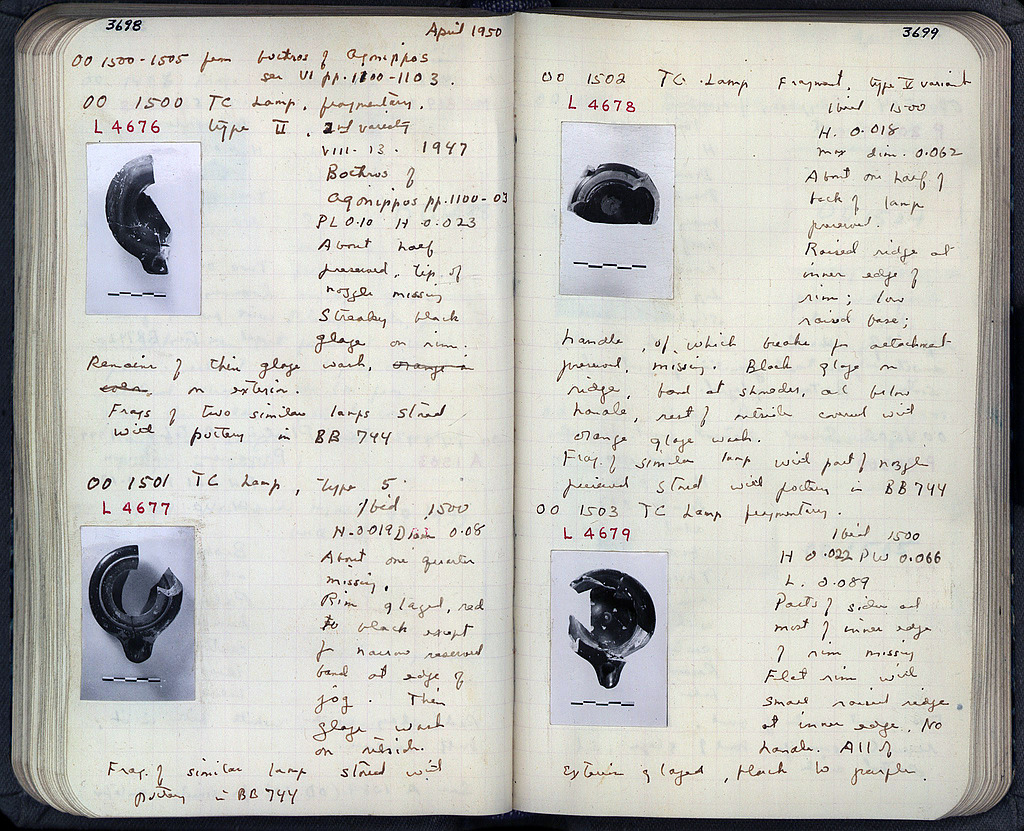 3698
April 1950
OO 1500-1505 from bothros of Agonippos
see VI pp. 1100-1103.
OO 1500 TC Lamp, fragmentary.
L 4676 type II, 2nd variety
VIII-13-1947
Bothros of
Agonippos pp. 1100-03
PL 0.10 H 0.023
About half
preserved, tip of
nozzle missing
Streaky black
glaze on rim.
Remains of thin glaze wash, orange in
color, on exterior.
Frags of two similar lamps stored
with pottery in BB 744
OO 1501 TC Lamp, type 5
L 4677
Ibid 1500
H-0.019 Diam 0.08
About one quarter
missing.
Rim glazed, red
to black except
for narrow reserved
band at edge of
jog. Thin
glaze wash
on outside.
Frag. of similar lamp stored with
pottery in BB 744
3699
OO 1502 TC Lamp Fragment, type V variant
L 4678
Ibid 1500
H. 0.018
max dim. 0.062
About one half of
back of lamp
preserved.
Raised ridge at
inner edge of
rim; low
raised base;
handle, of which breaks for attachment
preserved, missing. Black glaze on
ridge, band at shoulder, and below
handle, rest of outside covered with
orange glaze wash.
Frag. of similar lamp with part of nozzle
preserved stored with pottery in BB 744
OO 1503 TC Lamp fragmentary.
L 4679
Ibid 1500
H 0.022 PW 0.066
L. 0.089
Parts of sides and
most of inner edge
of rim missing
Flat rim with
small raised ridge
at inner edge. No
handle. All of
exterior glazed, black to purple.